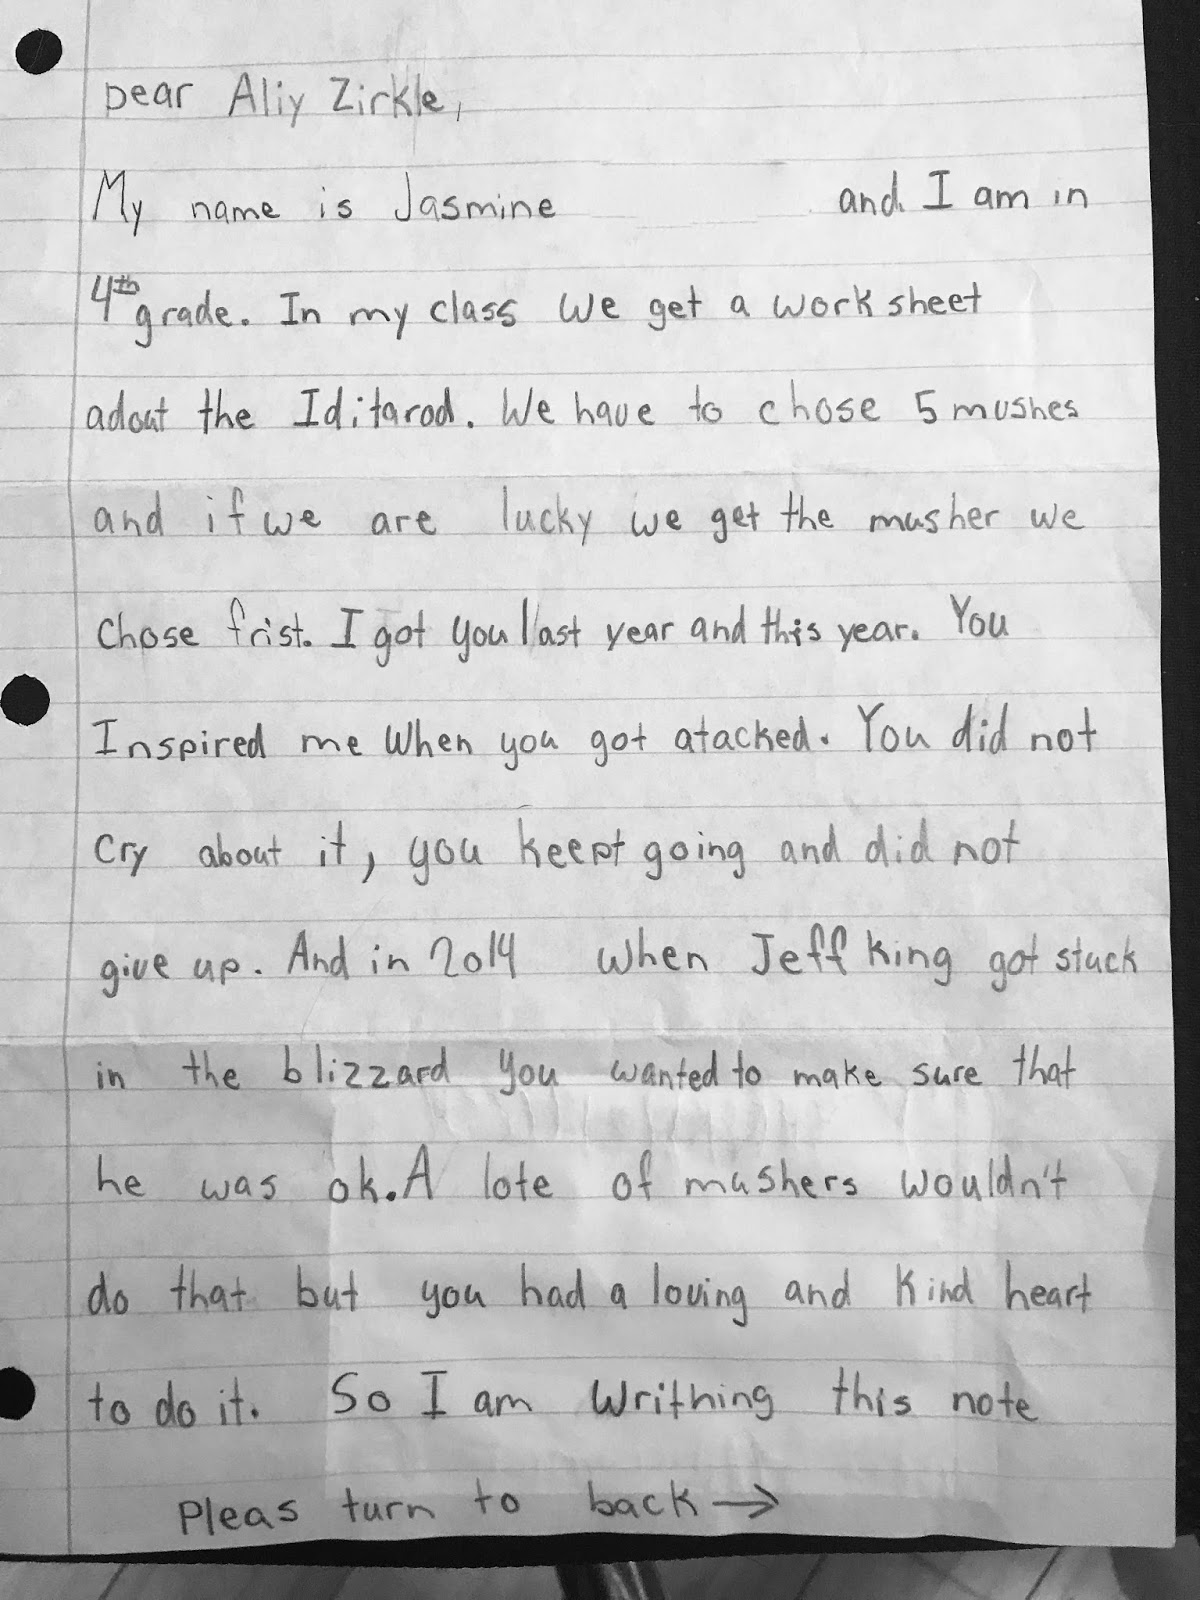 Dear Aliy Zirkle,
My name is Jasmine and I am in
4th grade. In my class we get a work sheet
adout the Iditarod. We have to chose 5 mushes
and if we are lucky we get the musher we
chose frist. I got you last year and this year. You
Inspired me when you got atacked. You did not
cry about it, you keept going and did not
give up. And in 2014 when Jeff King got stuck
in the blizzard you wanted to make sure that
he was ok. A lote of mushers wouldn't
do that but you had a loving and kind heart
to do it. So I am writhing this note
Pleas turn to back →